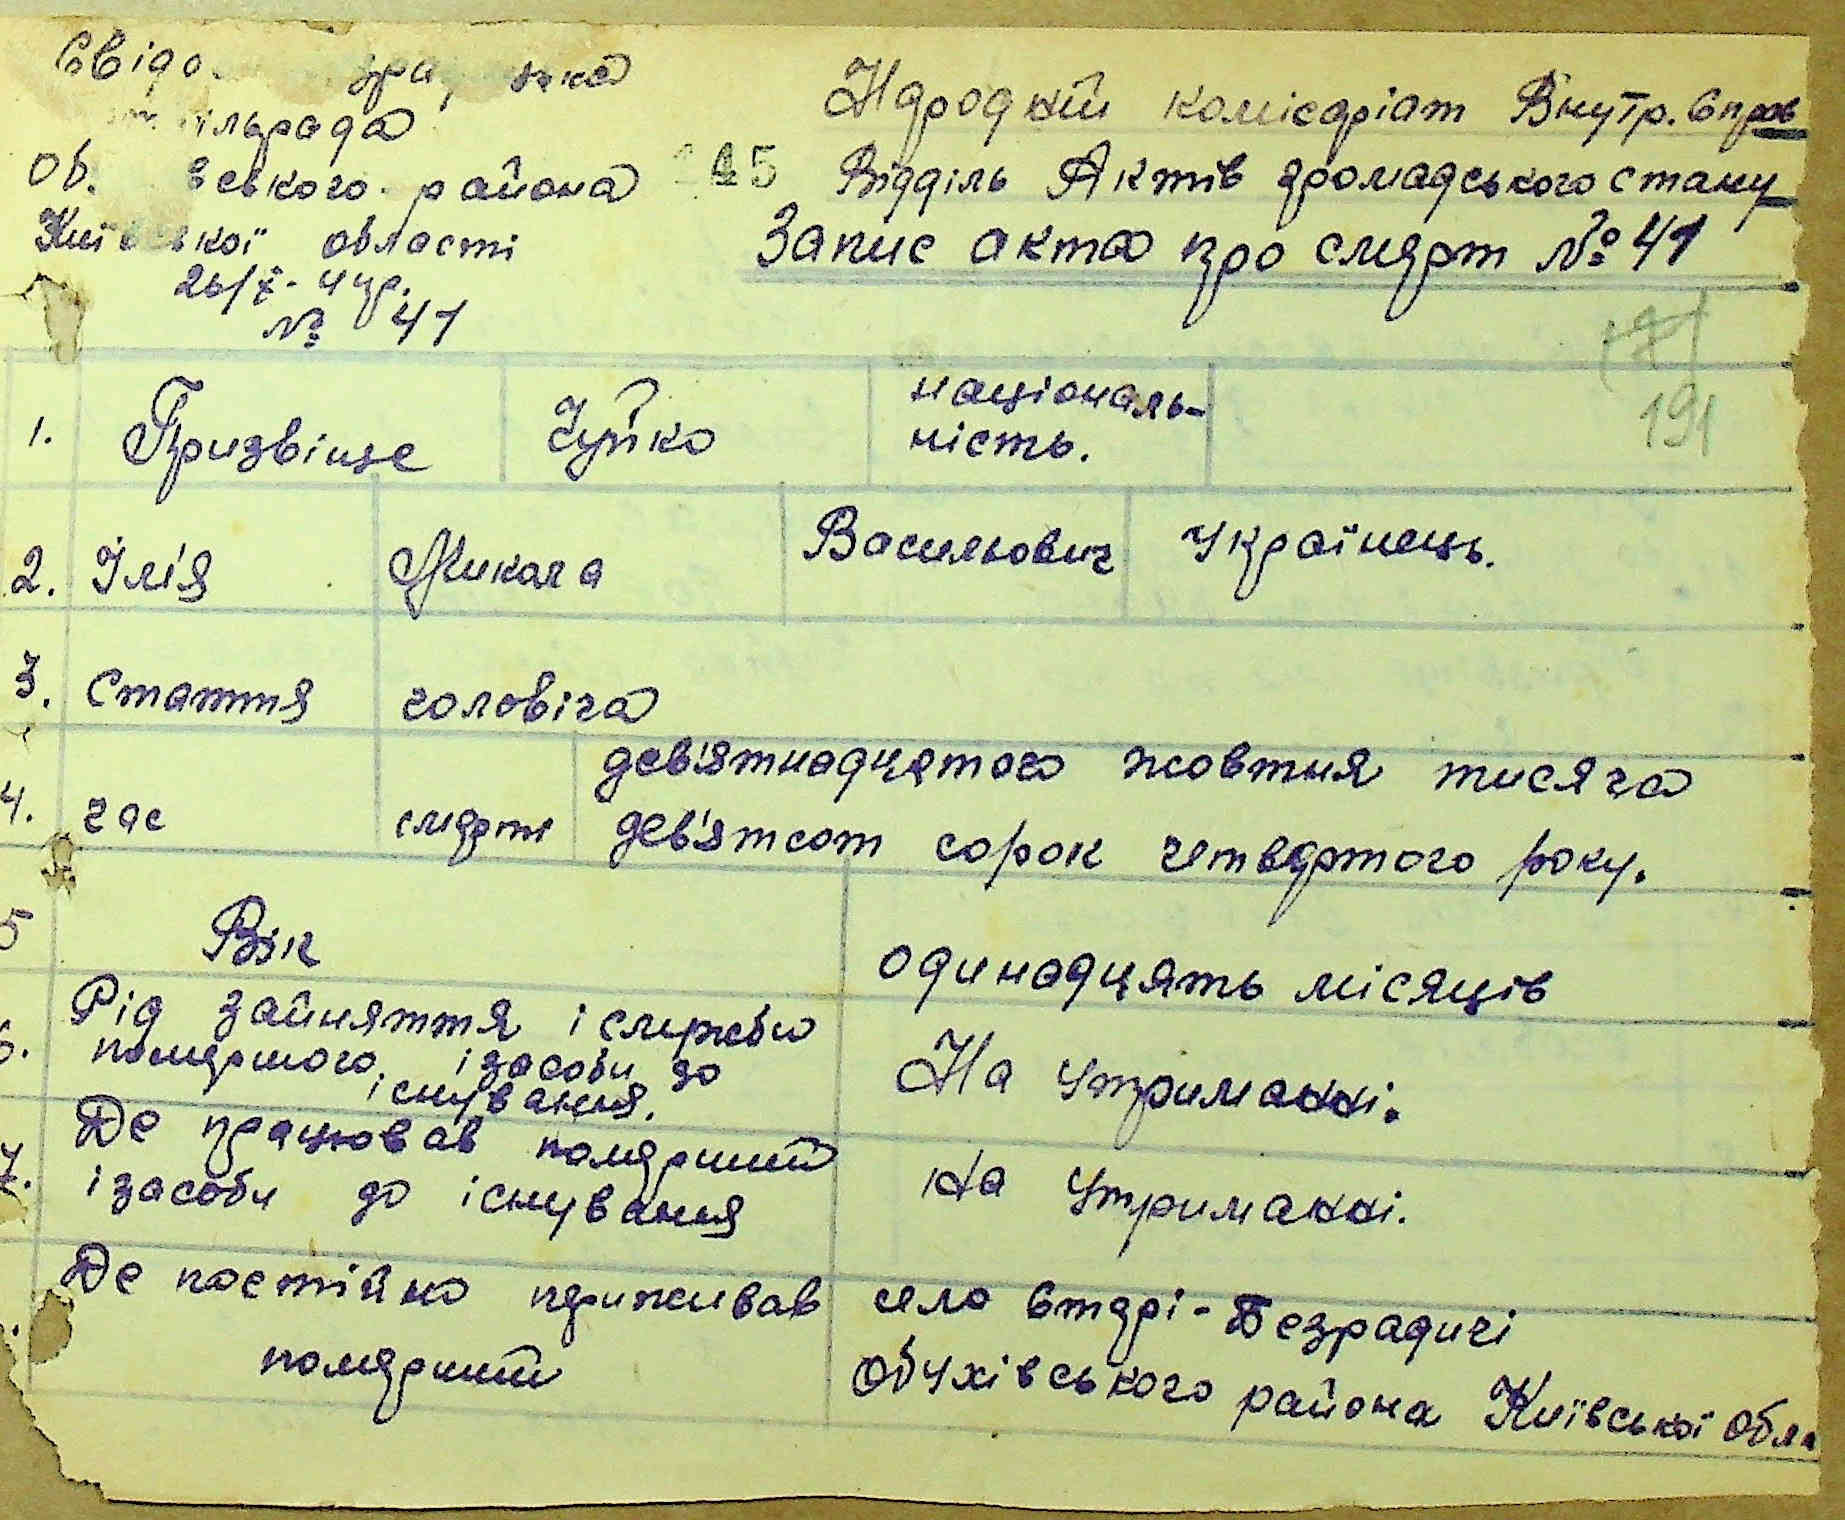 ільрада
вського района
Київської області
26/X - 44р.
№ 41
Народній комісаріат Внутр. Справ
145 Відділь Актів громадського стану
Запис акта про смерт № 41
191
1. Призвіще Чуйко національ-
ність.
2. Ілі'я Микола Васильович Українець.
3. Стаття чоловіча
4. час смерти дев'ятнадцятого жовтня тисяча
дев'ятсот сорок четвертого року.
5 Вік одинадцять місяців
6. Рід зайняття і служби
помершого, і засоби до
існування. На утриманні.
7. Де працював померший
і засоби до існування На утриманні.
Де постійно приживав село Старі-Безрадичі
померший Обухівського района Київської Обла